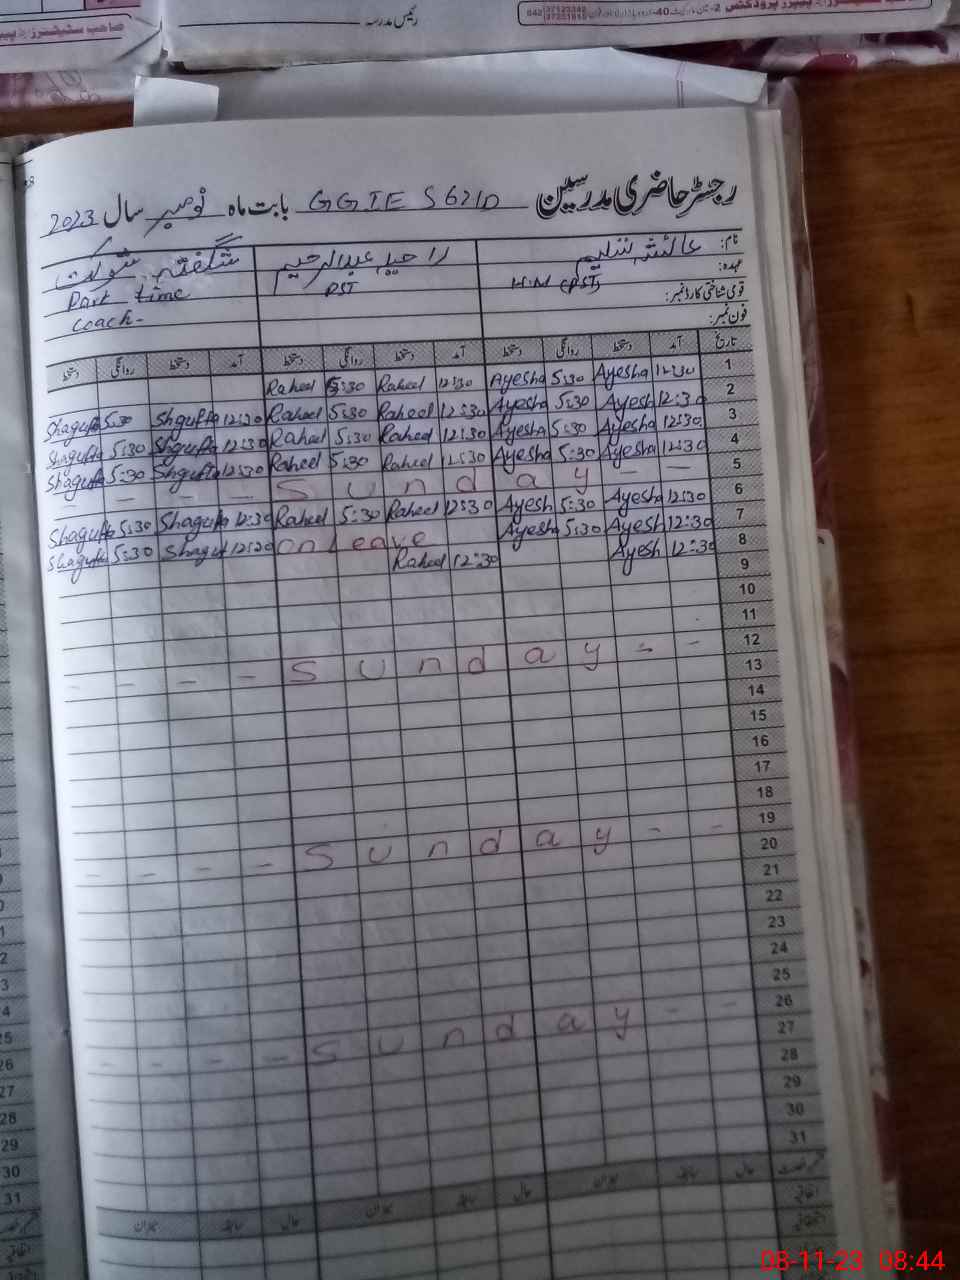 رئیس مدرسہ
رجسٹر حاضری مدرسین GGIE S621D بابت ماہ نومبر سال 2023
نام: عائشہ سلیم راحیلہ عبدالرحیم شگفتہ شوکت
عہدہ: H.M (PST) PST Part time
قومی شناختی کارڈ نمبر: Coach-
فون نمبر:
تاریخ آمد دستخط روانگی دستخط آمد دستخط روانگی دستخط آمد دستخط روانگی دستخط
1 12:30 Ayesha 5:30 Ayesha 12:30 Raheel 5:30 Raheel
2 12:30 Ayesh 5:30 Ayesha 12:30 Raheel 5:30 Raheel 12:30 Shgufta 5:30 Shagufta
3 12:30 Ayesha 5:30 Ayesha 12:30 Raheel 5:30 Raheel 12:30 Shgufta 5:30 Shagufta
4 12:30 Ayesha 5:30 Ayesha 12:30 Raheel 5:30 Raheel 12:30 Shgufta 5:30 Shagufta
5 — — S u n d a y — — —
6 12:30 Ayesha 5:30 Ayesh 12:30 Raheel 5:30 Raheel 12:30 Shagufta 5:30 Shagufta
7 12:30 Ayesh 5:30 Ayesha on leave 12:20 Shaguf 5:30 Shagufta
8 12:30 Ayesh 12:30 Raheel
9
10
11
12 - - S u n d a y - - - -
13
14
15
16
17
18
19 - - S u n d a y - - - -
20
21
22
23
24
25
26 - - S u n d a y - - - -
27
28
29
30
31
حال سابقہ میزان حال سابقہ میزان حال سابقہ میزان
اتفاقیہ
08-11-23 08:44